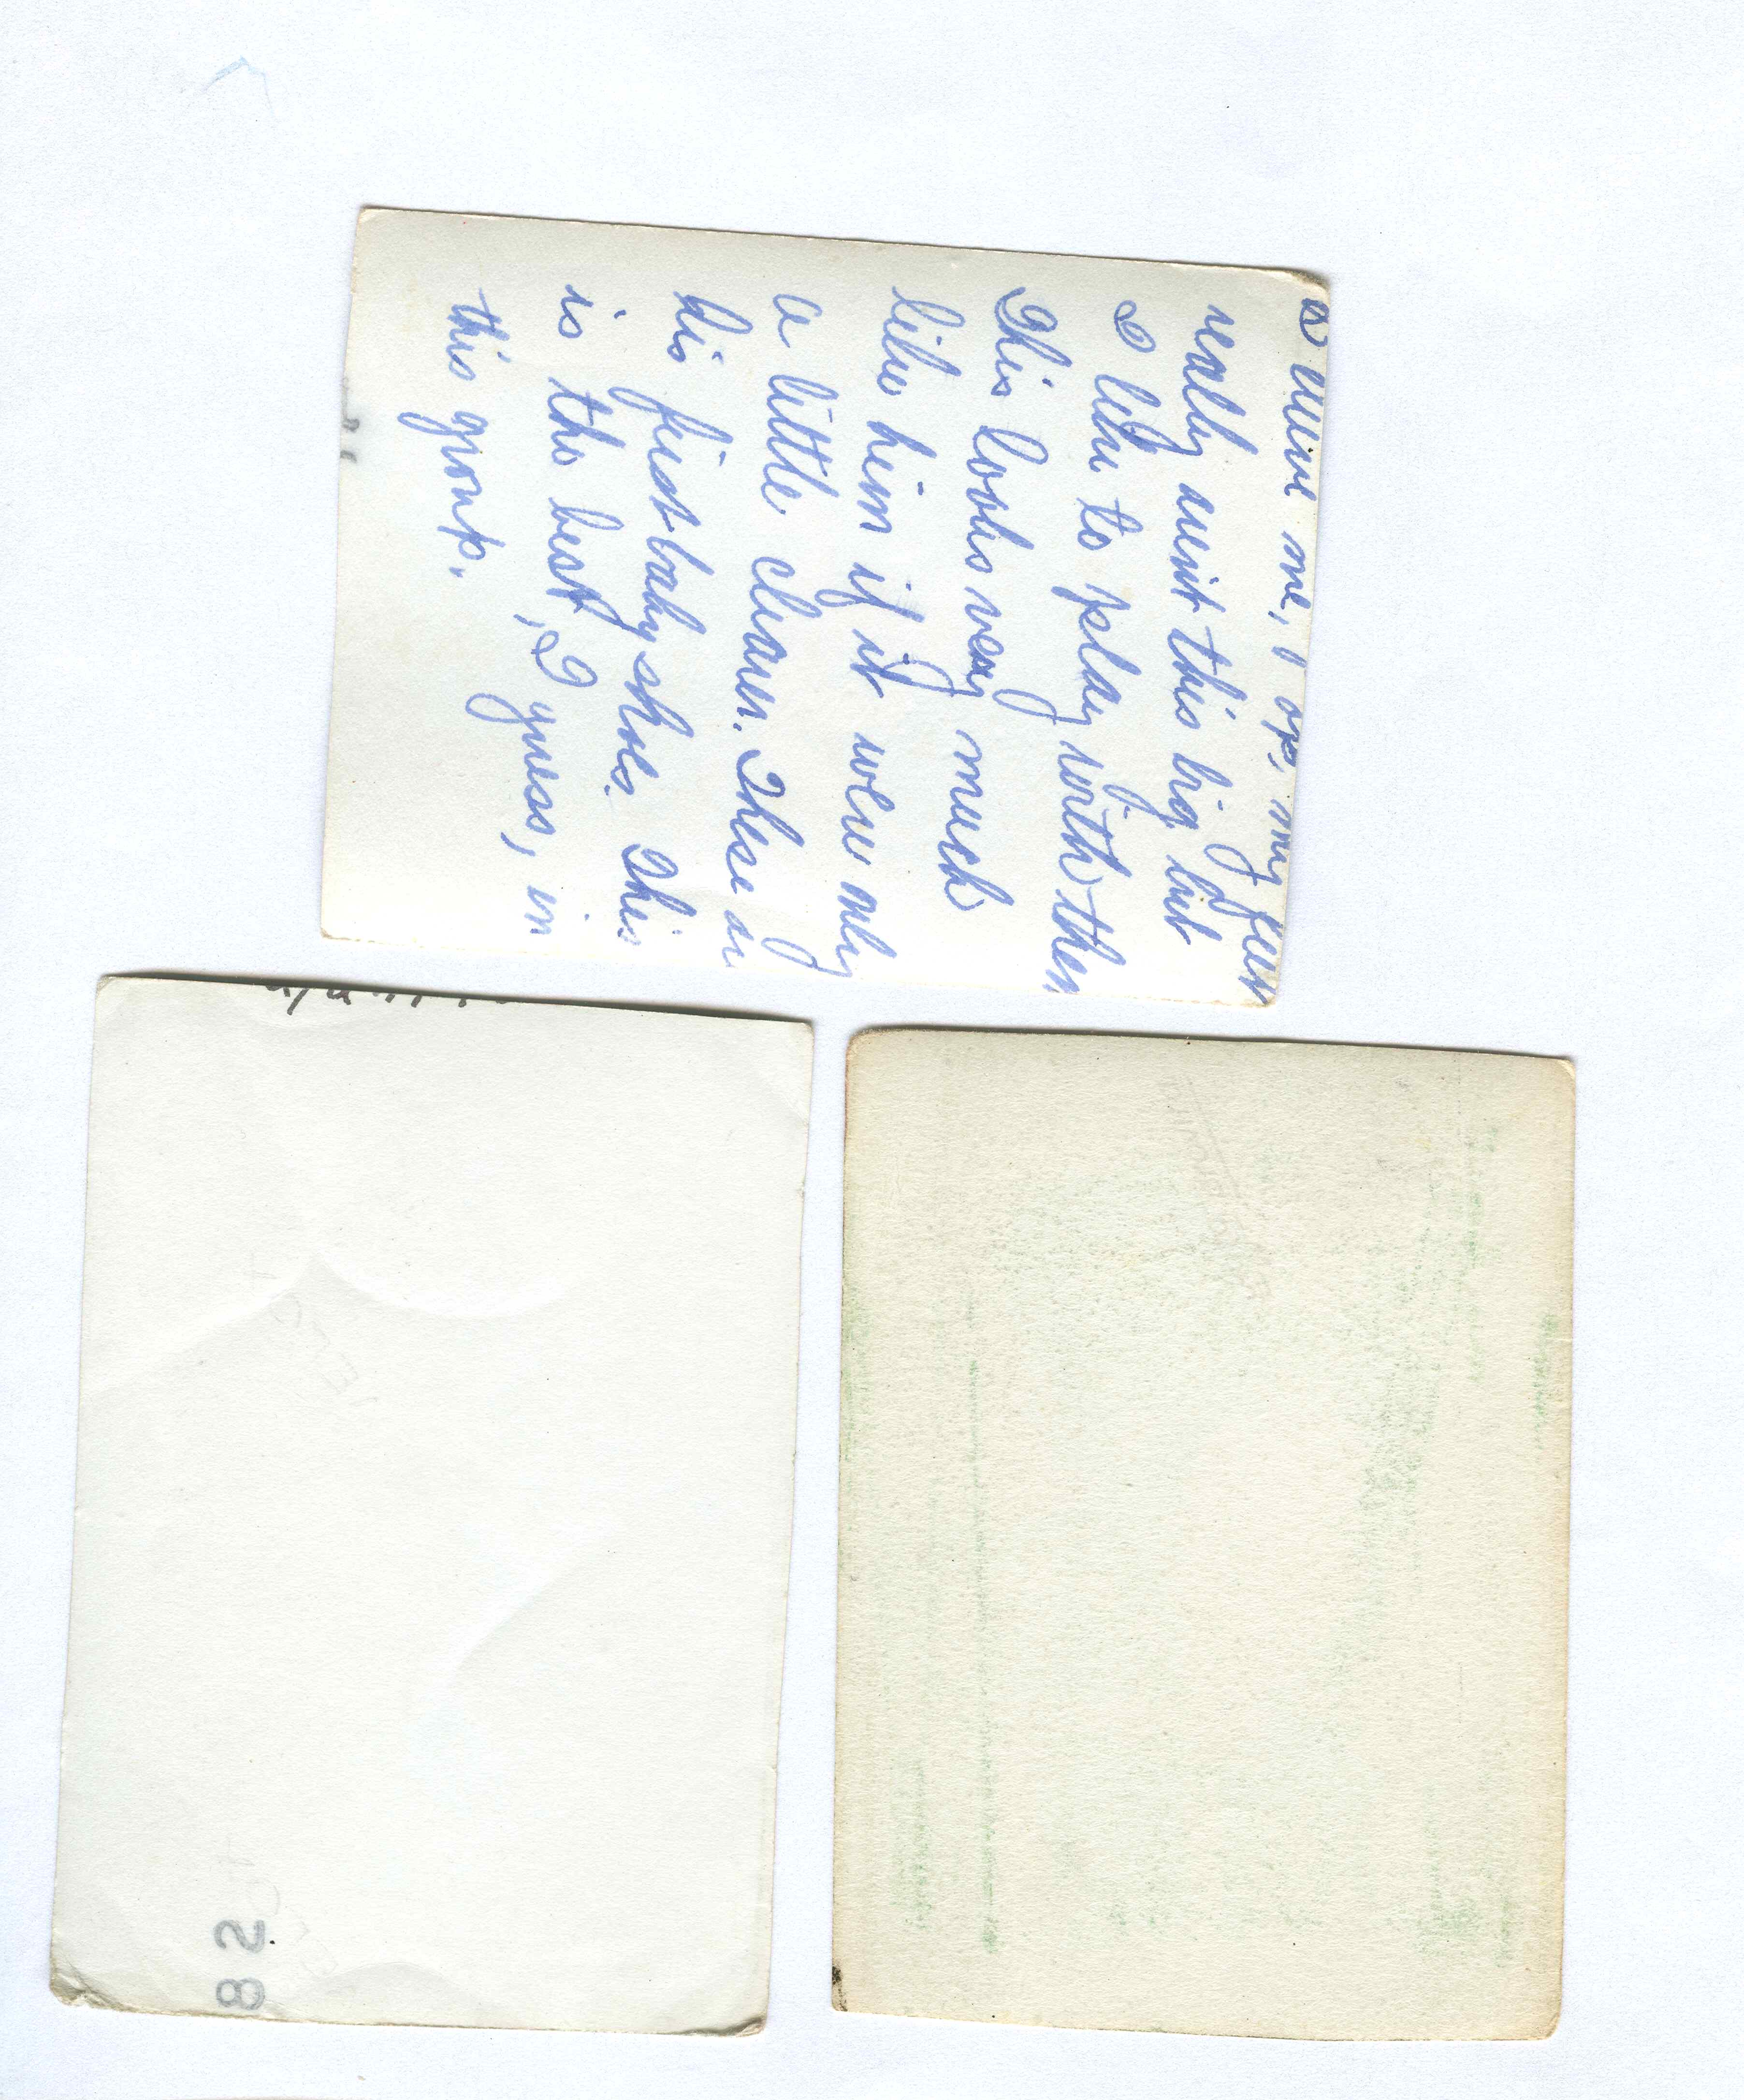 me, Pop, my feet
really aint this big but
I like to play with them
This looks very much
like him if it were only
a little clearer. These are
his first baby shoes. This
is the best, I guess, in
this group.
82